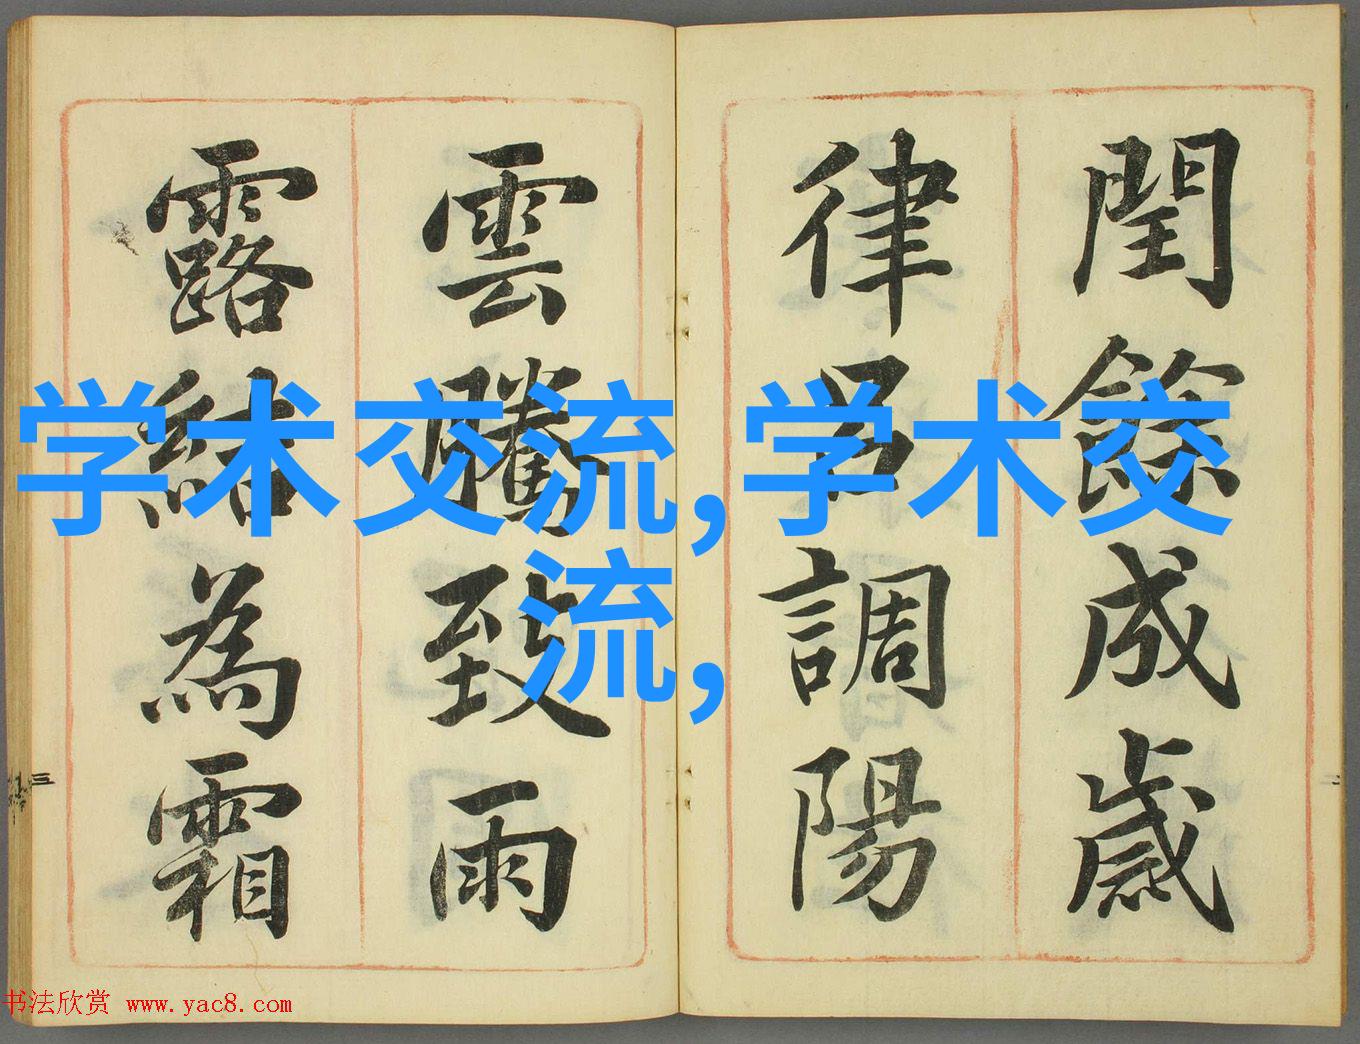 閏餘成歲
律呂調陽
雲騰致雨
露結為霜
学术交流,学术交
流,
二
三
书法欣赏 www.yac8.com